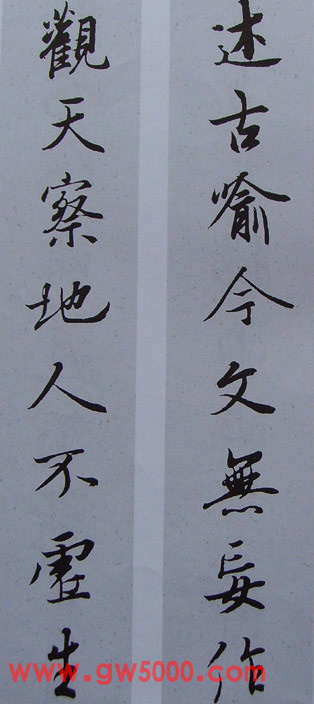 述古喻今文無妄作
觀天察地人不虛生
www.gw5000.com